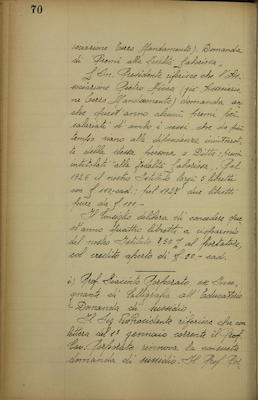 70
sociazione Terzo Mandamento). Domanda
di Premi alla fedeltà fabbrica.
L'On. Presidente riferisce che l'As-
sociazione Pietro (già Associazio-
ne Terzo Mandamento) domanda an-
che quest'anno alcuni premi pei
salariati d'ambo i sessi che da più
tempo sono alle dipendenze
te della stessa persona o Ditta:
intitolati alla fedeltà fabbrica. Pel
1926 il nostro Istituto largì 5 libretti
con £ 100 cad.; pel 1927 due libretti
pure da £ 100 -
Il Consiglio delibera di concedere que
st'anno quattro libretti a risparmio
del nostro Istituto
col credito aperto di £ 50 - cad.
i) Prof. Giacinto Perforato, ex Inse-
gnante di Calligrafia all'Educatorio
Domanda di sussidio.
Il Sig. VicePresidente riferisce che con
lettera del 1° gennaio corrente il Prof.
Cav. Perforato rinnova la consueta
domanda di sussidio. Il Prof. Per